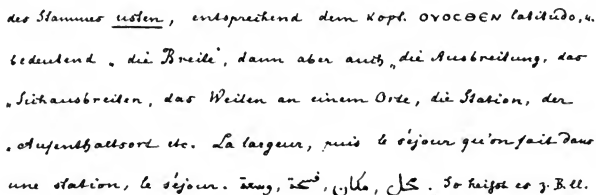 des Stammes usten, entsprechend dem Kopt. ⲟⲩⲟⲥⲑⲉⲛ latitudo, u.
bedeutend „die Breite", dann aber auch „die Ausbreitung, das
„Sichausbreiten, das Weilen an einem Orte, die Station, der
„Aufenthaltsort etc. La largeur, puis le séjour qu'on fait dans
une station, le séjour. محل, مكان, فسحة, وسعة. So heißt es z. B. ll.